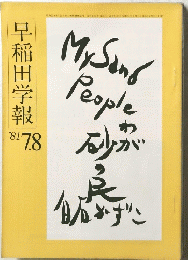 早稲田学報
'81 7.8
My Sand
People
わが
砂の
民
白石かずこ